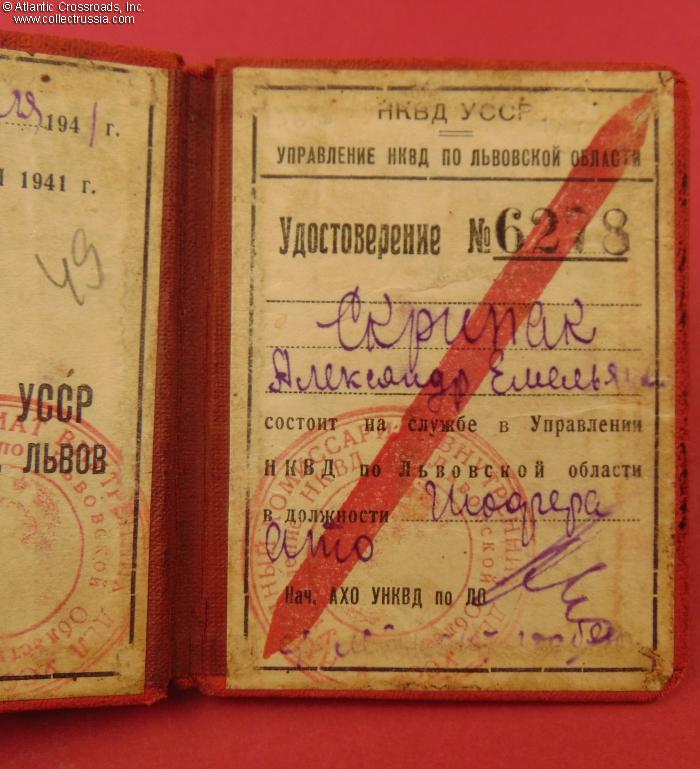 © Atlantic Crossroads, Inc.
www.collectrussia.com
1941 г.
1941 г.
49
УССР
ЛЬВОВ
НКВД УССР
УПРАВЛЕНИЕ НКВД ПО ЛЬВОВСКОЙ ОБЛАСТИ
Удостоверение №6278
Скрипак
Александр
состоит на службе в Управлении
НКВД по Львовской области
в должности Шофера
АТО
Нач. АХО УНКВД по ЛО